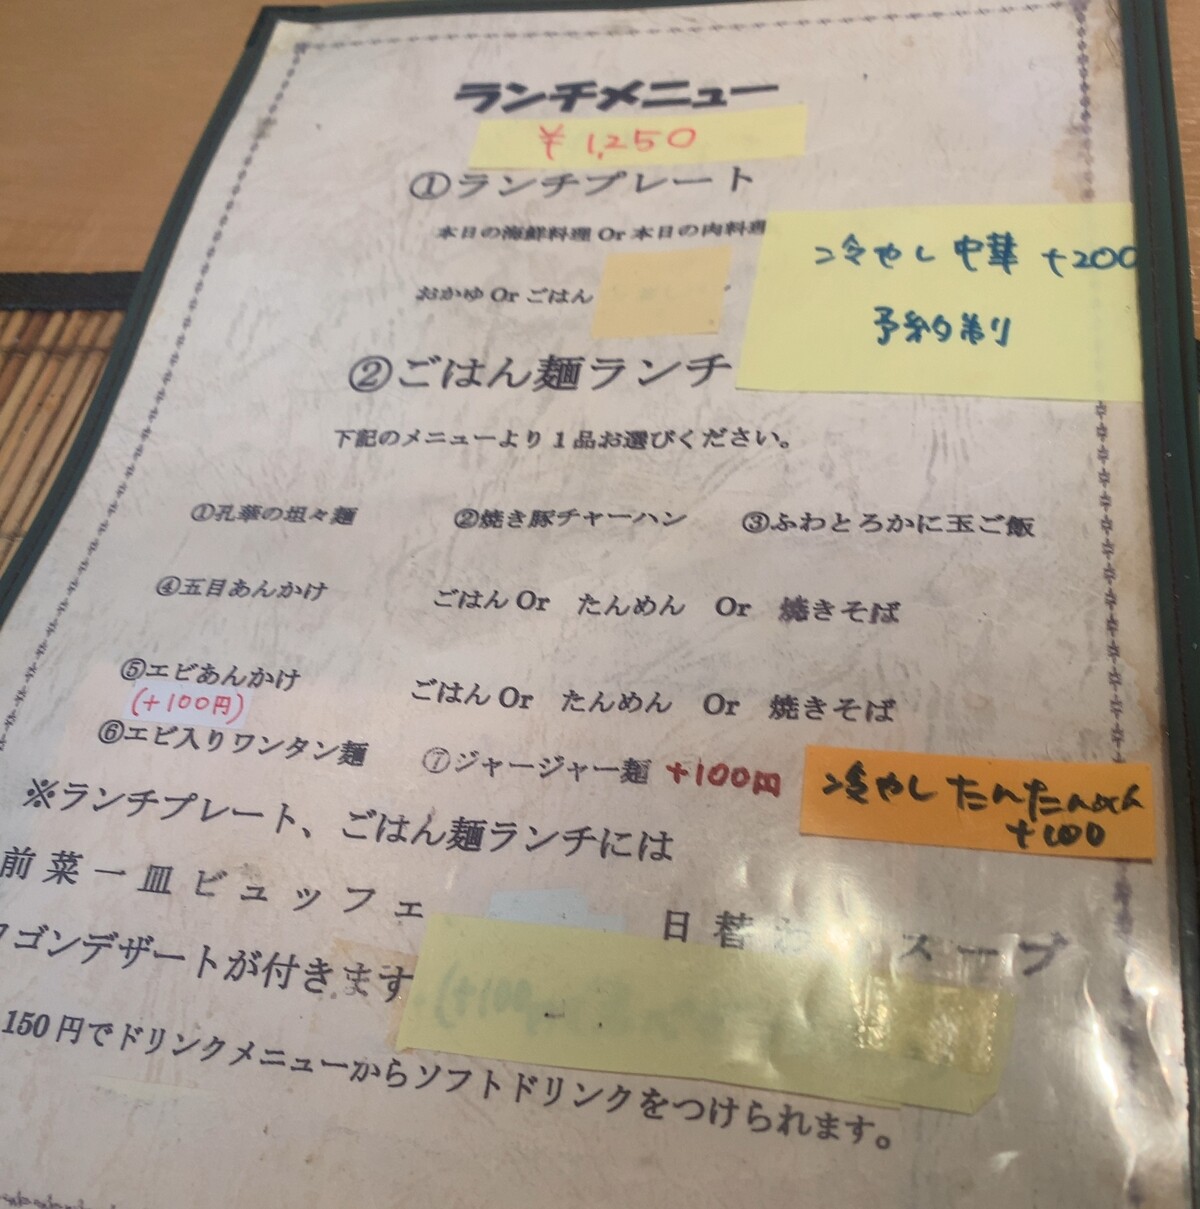 ランチメニュー
¥1,250
①ランチプレート
本日の海鮮料理 Or 本日の肉料理
冷やし中華 +200
おかゆ Or ごはん
予約制り
②ごはん麺ランチ
下記のメニューより1品お選びください。
①孔華の坦々麺 ②焼き豚チャーハン ③ふわとろかに玉ご飯
④五目あんかけ ごはん Or たんめん Or 焼きそば
⑤エビあんかけ ごはん Or たんめん Or 焼きそば
(+100円)
⑥エビ入りワンタン麺 ⑦ジャージャー麺 +100円
冷やしたんたんめん
+100
※ランチプレート、ごはん麺ランチには
前菜一皿ビュッフェ 日替わ スープ
ワゴンデザートが付きます
(+100
150円でドリンクメニューからソフトドリンクをつけられます。